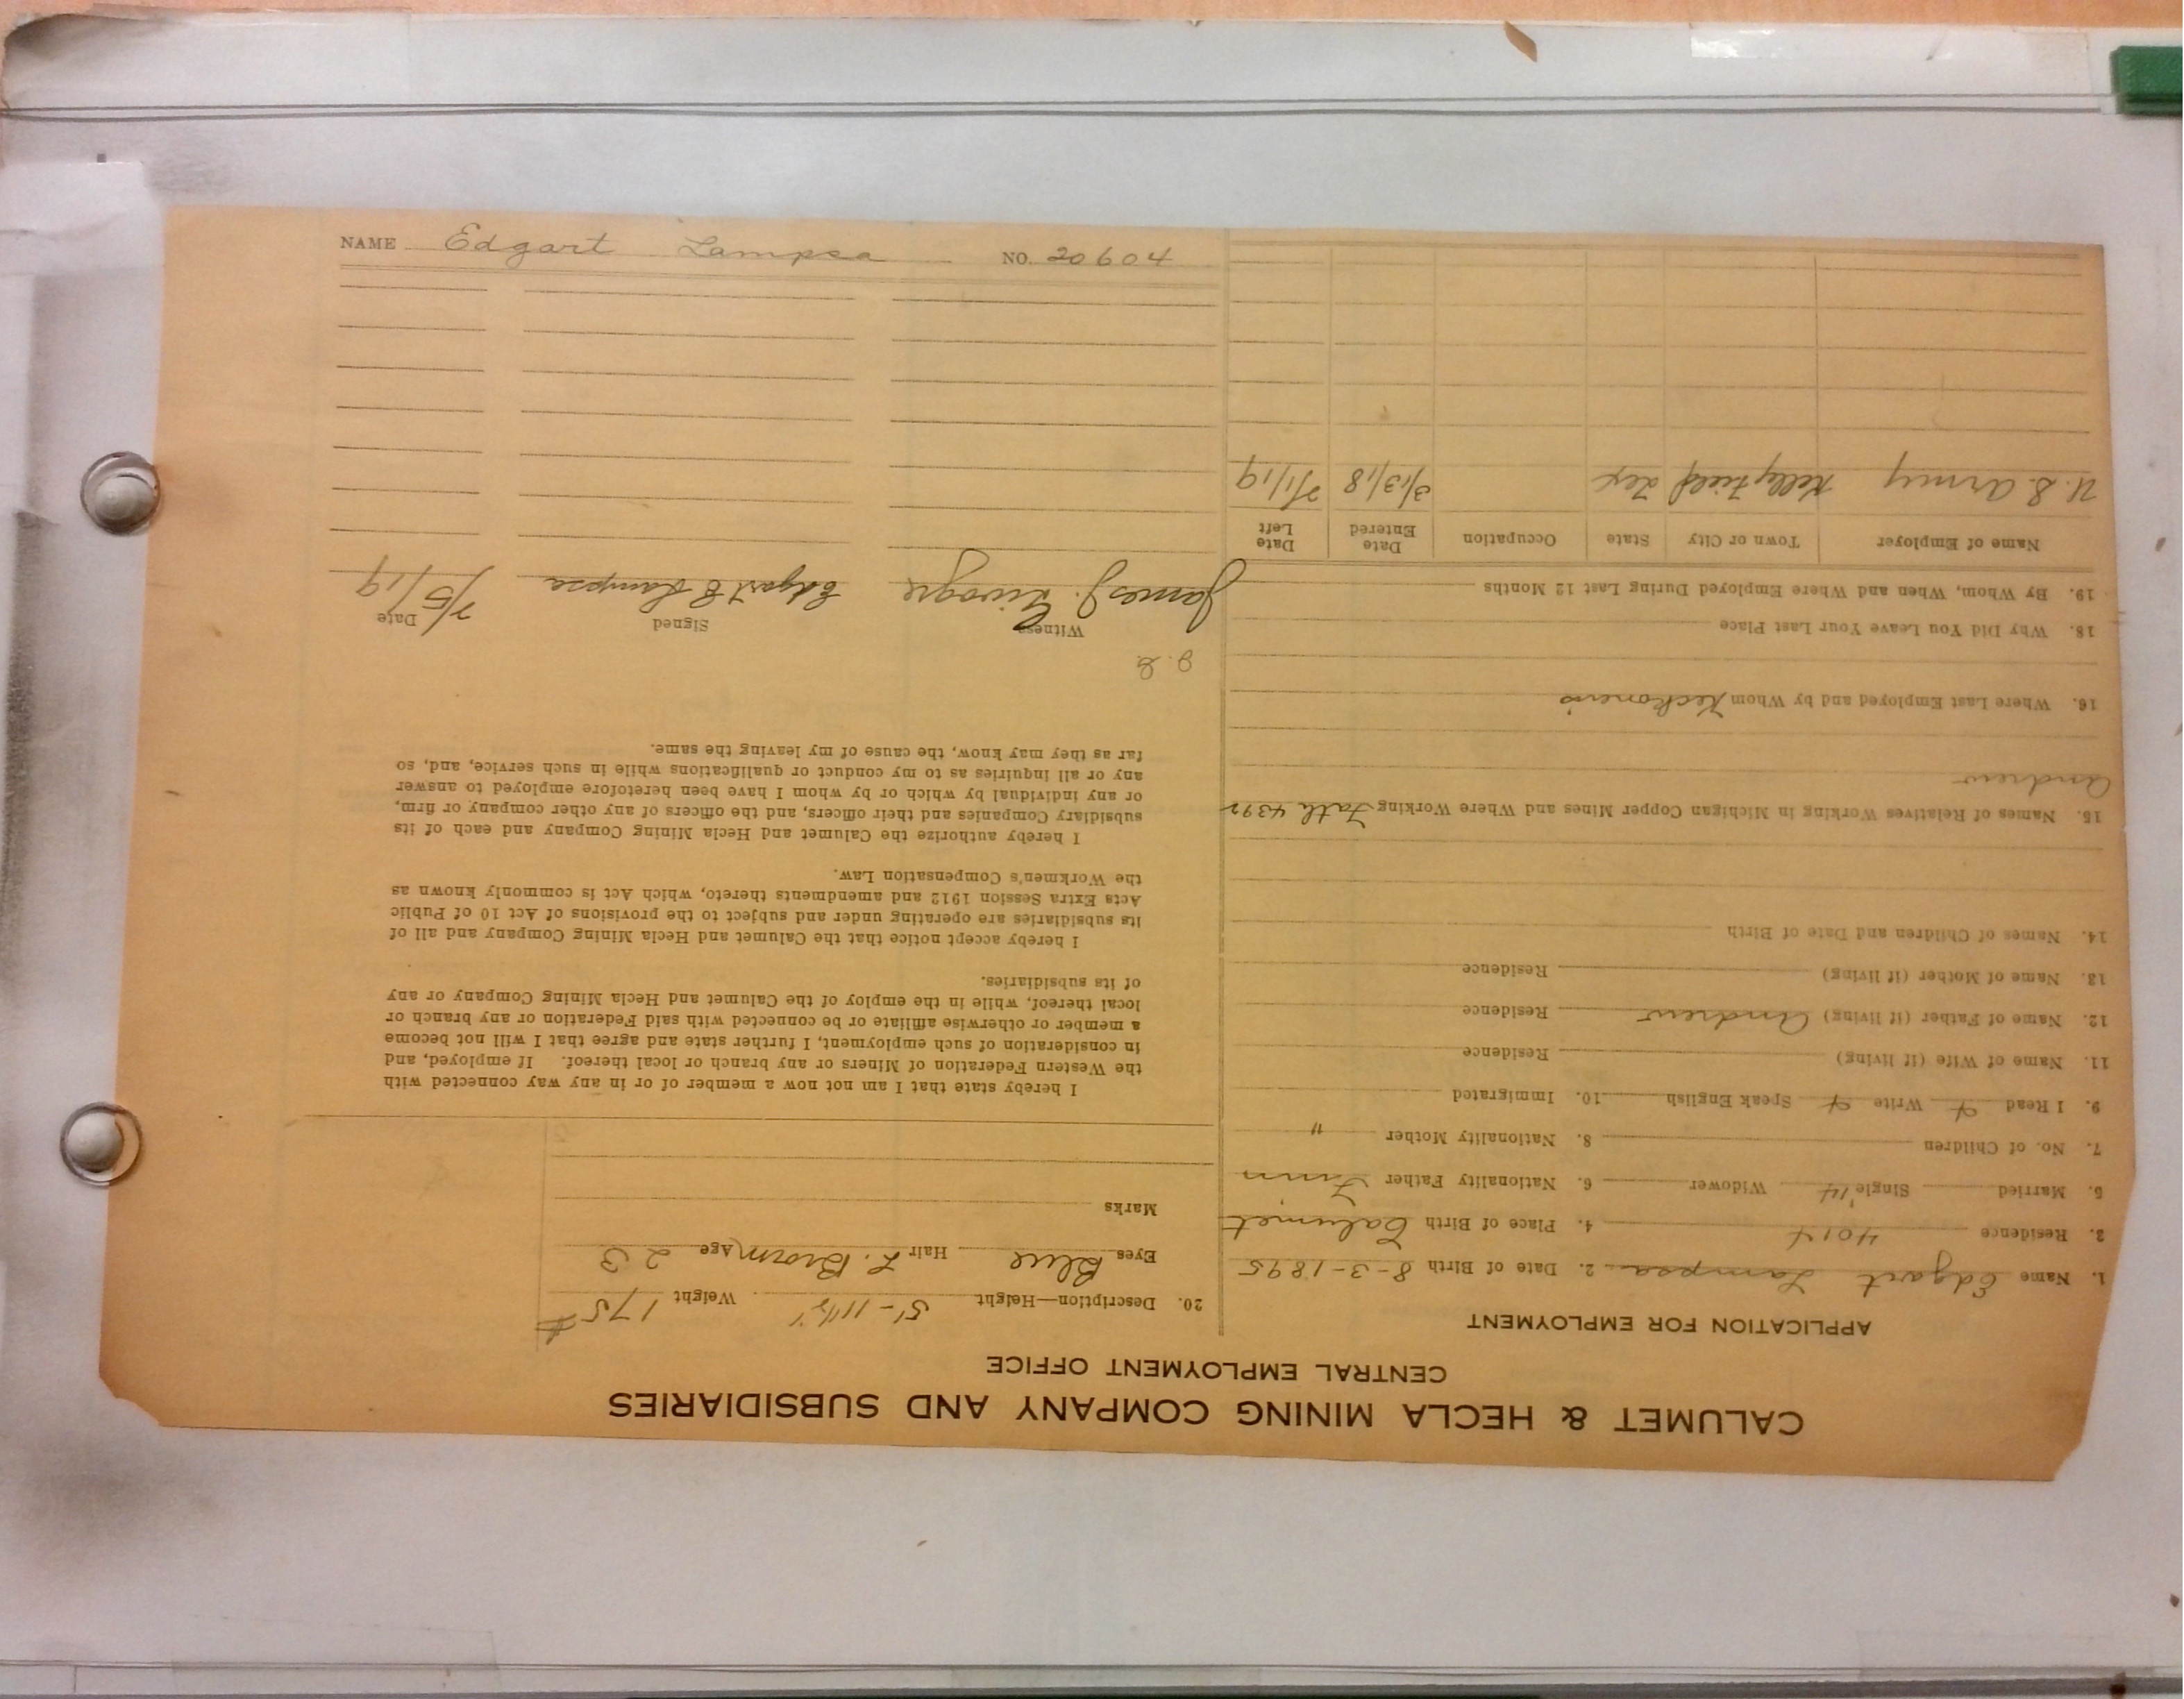 CALUMET & HECLA MINING COMPANY AND SUBSIDIARIES
CENTRAL EMPLOYMENT OFFICE
APPLICATION FOR EMPLOYMENT
1. Name Edgart Lampsa 2. Date of Birth 8-3-1895
3. Residence 4014 4. Place of Birth Calumet
5. Married Single Widower 6. Nationality Father Finn
7. No. of Children 8. Nationality Mother "
9. I Read Write Speak English 10. Immigrated
11. Name of Wife (if living) Residence
12. Name of Father (if living) Andrew Residence
13. Name of Mother (if living) Residence
14. Names of Children and Date of Birth
15. Names of Relatives Working in Michigan Copper Mines and Where Working Fath 4392
Andrew
16. Where Last Employed and by Whom
18. Why Did You Leave Your Last Place
19. By Whom, When and Where Employed During Last 12 Months
Name of Employer Town or City State Occupation Date Entered Date Left
U.S. Army Kelly Field Tex 3/13/18 7/1/19
20. Description—Height 5'-11½" Weight 175#
Eyes Blue Hair L. Brown Age 23
Marks
I hereby state that I am not now a member of or in any way connected with
the Western Federation of Miners or any branch or local thereof. If employed, and
in consideration of such employment, I further state and agree that I will not become
a member or otherwise affiliate or be connected with said Federation or any branch or
local thereof, while in the employ of the Calumet and Hecla Mining Company or any
of its subsidiaries.
I hereby accept notice that the Calumet and Hecla Mining Company and all of
its subsidiaries are operating under and subject to the provisions of Act 10 of Public
Acts Extra Session 1912 and amendments thereto, which Act is commonly known as
the Workmen's Compensation Law.
I hereby authorize the Calumet and Hecla Mining Company and each of its
subsidiary Companies and their officers, and the officers of any other company or firm,
or any individual by which or by whom I have been heretofore employed to answer
any or all inquiries as to my conduct or qualifications while in such service, and, so
far as they may know, the cause of my leaving the same.
Witness Signed Date
James J. Edgart E Lampsa 7/5/19
NAME Edgart Lampsa NO. 20604